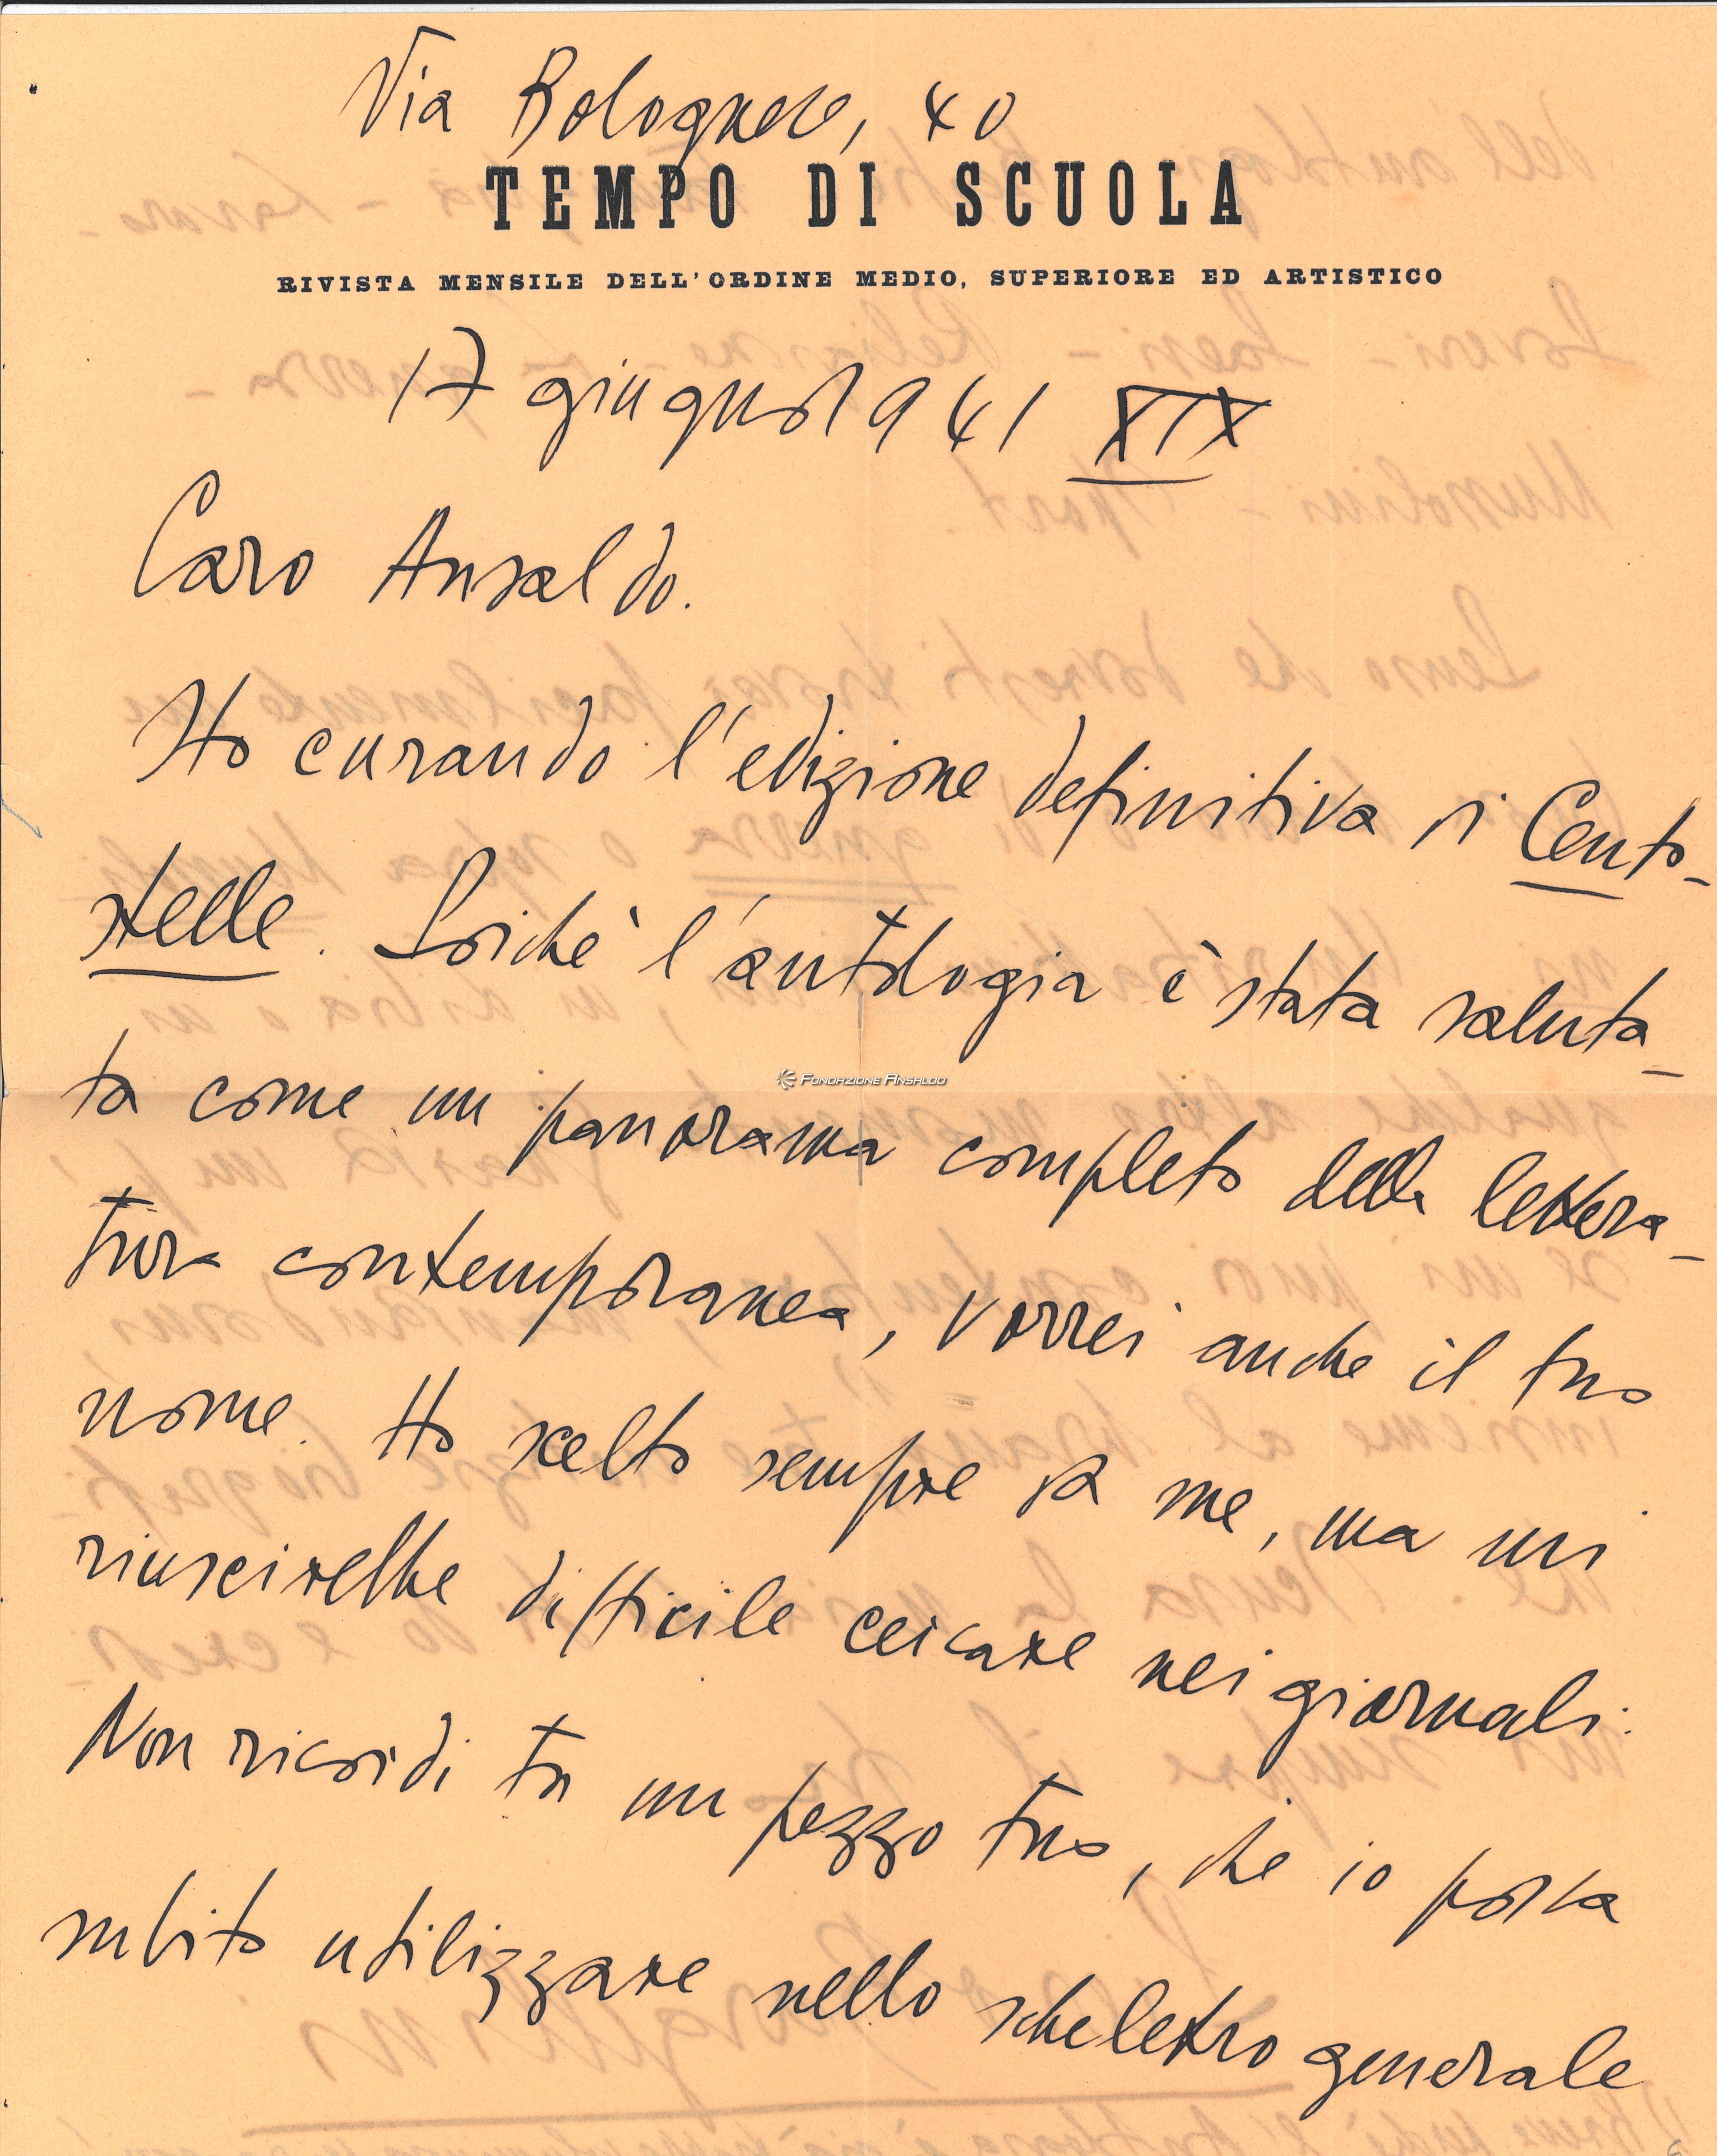 Via Bolognese, 40
TEMPO DI SCUOLA
RIVISTA MENSILE DELL'ORDINE MEDIO, SUPERIORE ED ARTISTICO
17 giugno 1941 XIX
Caro Ansaldo.
Sto curando l'edizione definitiva di Cento-
stelle. Poichè l'antologia è stata saluta-
ta come un panorama completo della lettera-
tura contemporanea, vorrei anche il tuo
nome. Ho scelto sempre da me, ma mi
riuscirebbe difficile cercare nei giornali.
Non ricordi tu un pezzo tuo, che io possa
subito utilizzare nello scheletro generale
FONDAZIONE ANSALDO